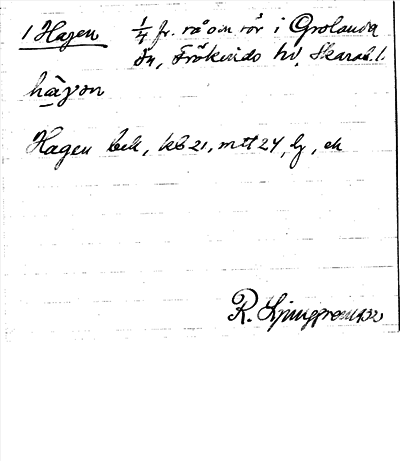 1 Hagen 1/4 fr. rå om rör i Grolanda
sn, Frökinds hd, Skarab. l.
hàgon
Hagen beb, kb 21, mtl 24, lj, ek
R. Ljunggren 1932